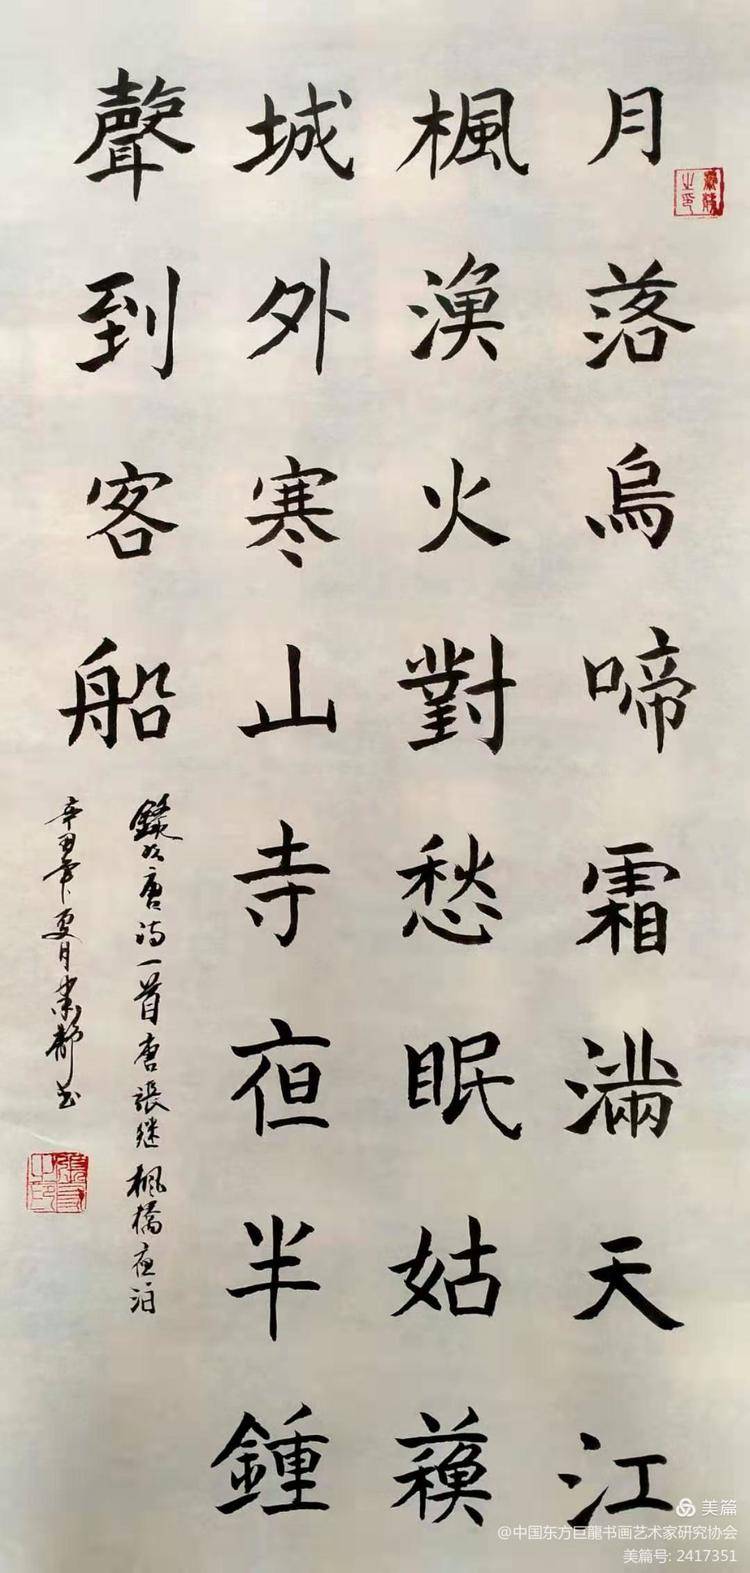 月落烏啼霜滿天江
楓漁火對愁眠姑蘓
城外寒山寺夜半鍾
聲到客船
錄於唐诗一首唐張继枫橋夜泊
辛丑年夏月靜书
之印
美篇
@中国东方巨龍书画艺术家研究协会
美篇号: 2417351